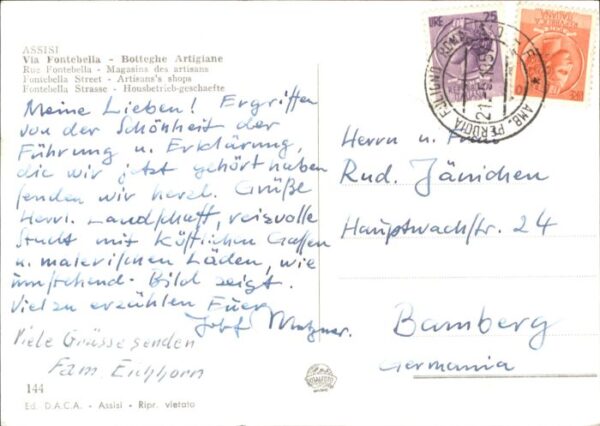 ASSISI
Via Fontebella - Botteghe Artigiane
Rue Fontebella - Magasins des artisans
Fontebella Street - Artisans's shops
Fontebella Strasse - Housbetrieb-geschaefte
LIRE 25
Meine Lieben! Ergriffen
von der Schönheit der
Führung u. Erklärung,
die wir jetzt gehört haben
senden wir herzl. Grüße
Herrl. Landschaft, reizvolle
Stadt mit köstlichen Gassen
u. malerischen Läden, wie
umstehend. Bild zeigt.
Viel zu erzählen Euer
Viele Grüsse senden
Fam. Eichhorn
Herrn u. Frau
Rud. Jänichen
Hauptwachstr. 24
Bamberg
Germania
AMB. PERUGIA FOLIGNO ROMA
144
Ed. D.A.C.A. - Assisi - Ripr. vietato